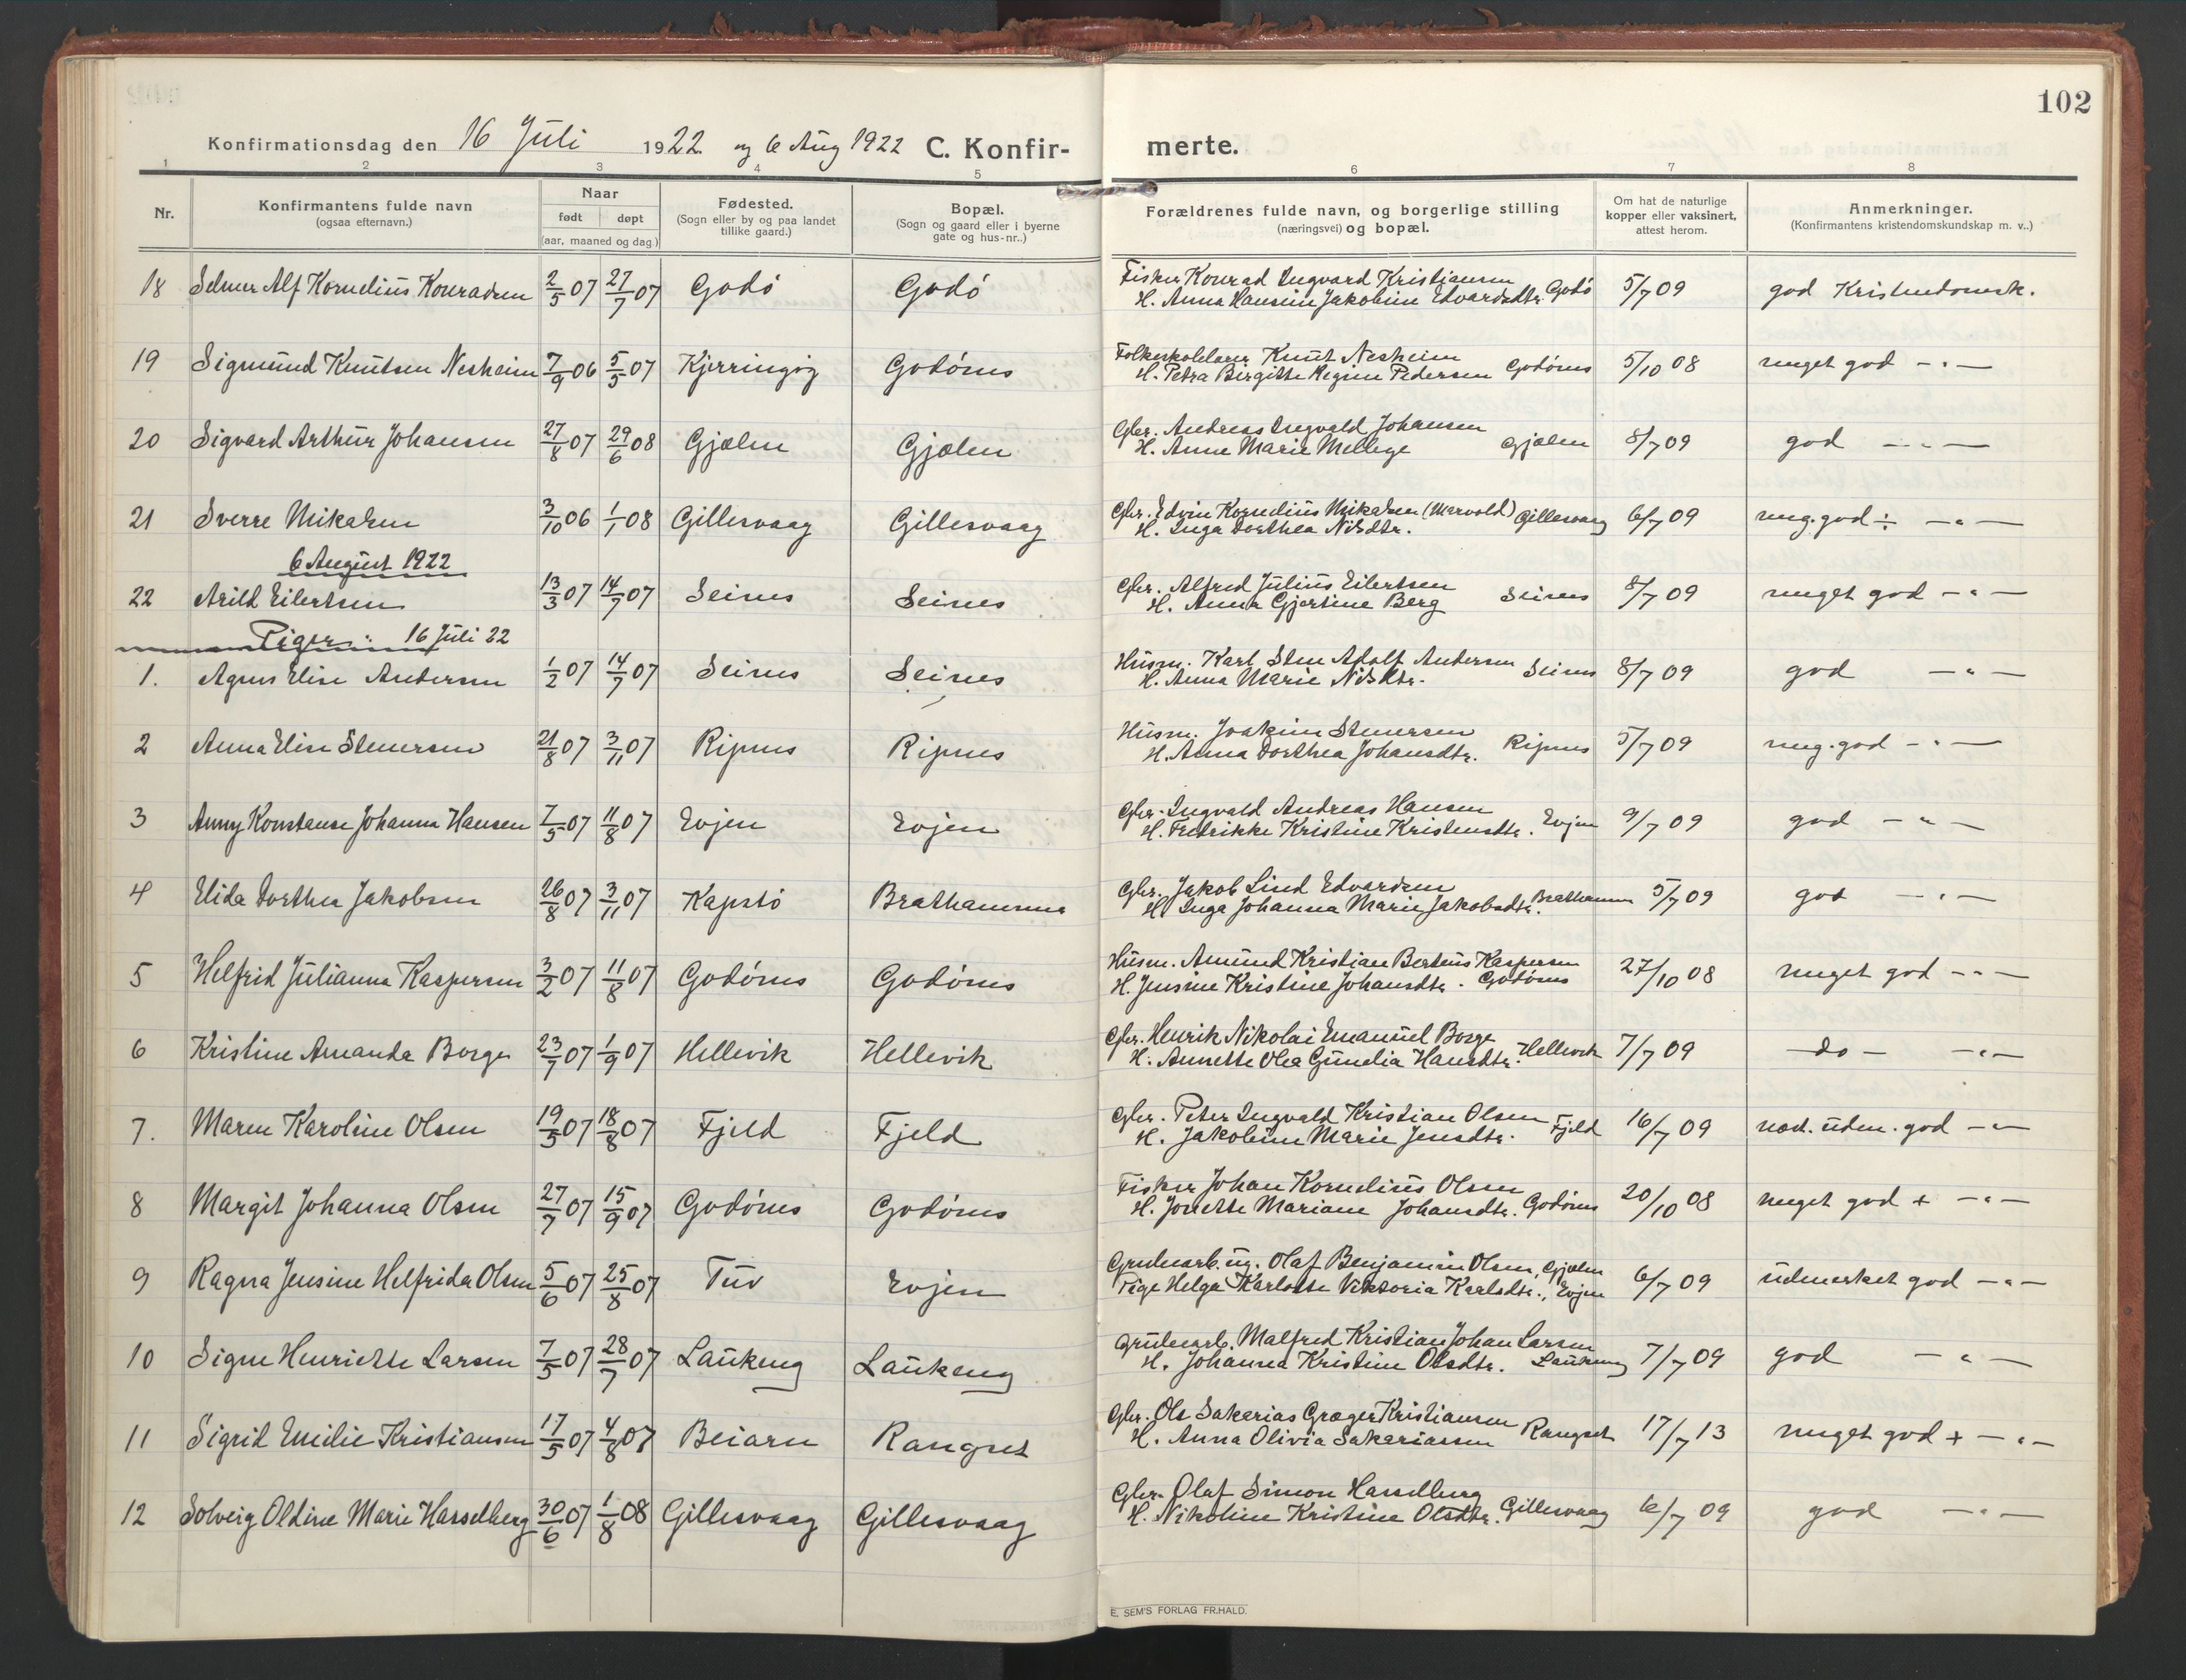 102
Konfirmationsdag den 16 Juli 1922 og 6 Aug 1922 C. Konfir- merte.
1 2 3 4 5 6 7 8
Nr. Konfirmantens fulde navn (ogsaa efternavn.) Naar født døpt (aar, maaned og dag.) Fødested. (Sogn eller by og paa landet tillike gaard.) Bopæl. (Sogn og gaard eller i byerne gate og hus-nr..) Forældrenes fulde navn, og borgerlige stilling (næringsvei) og bopæl. Om hat de naturlige kopper eller vaksinert, attest herom. Anmerkninger. (Konfirmantens kristendomskundskap m. v..)
18 Selmer Alf Kornelius Konradsen 2/5 07 27/7 07 Godö Godö Fisker Konrad Ingvard Kristiansen
H. Anna Hansine Jakobine Edvardsdtr. Godö 5/7 09 god Kristendomsk.
19 Sigmund Knutsen Nesheim 7/9 06 5/5 07 Kjerringöy Godönes Folkeskolelærer Knut Nesheim
H. Petra Birgitte Regine Pedersen Godönes 5/10 08 meget god - " -
20 Sigvard Arthur Johansen 27/8 07 29/6 08 Gjælen Gjælen Gbr. Andreas Ingvald Johansen
H. Anne Marie Mellege Gjælen 8/7 09 god - " -
21 Sverre Mikalsen 3/10 06 1/1 08 Gillesvaag Gillesvaag Gbr. Edvin Kornelius Mikalsen (Marvold) Gillesvaag
H. Inga Dorthea Nilsdtr. 6/7 09 meg. god ÷ - " -
6 August 1922
22 Arild Eilertsen 13/3 07 14/7 07 Seines Seines Gbr. Alfred Julius Eilertsen
H. Anna Gjertine Berg Seines 8/7 09 meget god - " -
Piger: 16 Juli 22
1. Agnes Elise Andersen 1/2 07 14/7 07 Seines Seines Husm. Karl Sten Adolf Andersen
H. Anna Marie Nilsdtr. Seines 8/7 09 god - " -
2 Anna Elise Stenersen 21/8 07 3/11 07 Ripnes Ripnes Husm. Joakim Stenersen
H. Anna Dorthea Johansdtr. Ripnes 5/7 09 meg. god - " -
3 Anny Konstanse Johanna Hansen 7/5 07 11/8 07 Evjen Evjen Gbr. Ingvald Andreas Hansen
H. Fredrikke Kristine Kristensdtr. Evjen 9/7 09 god - " -
4 Elida Dorthea Jakobsen 26/8 07 3/11 07 Kapstö Brathammeren Gbr. Jakob Lind Edvardsen
H. Inga Johanna Marie Jakobsdtr. Brathammeren 5/7 09 god - " -
5 Helfrid Julianna Kaspersen 3/2 07 11/8 07 Godönes Godönes Husm. Amund Kristian Berteus Kaspersen
H. Jensine Kristine Johansdtr. Godönes 27/10 08 meget god - " -
6 Kristine Amanda Borge 23/7 07 1/9 07 Hellevik Hellevik Gbr. Henrik Nikolai Emanuel Borge
H. Annette Olea Gunelia Hansdtr. Hellevik 7/7 09 - do - - " -
7. Maren Karoline Olsen 19/5 07 18/8 07 Fjeld Fjeld Gbr. Peter Ingvald Kristian Olsen
H. Jakobine Marie Jensdtr. Fjeld 16/7 09 næst. udm. god - " -
8 Margit Johanna Olsen 27/7 07 15/9 07 Godönes Godönes Fisker Johan Kornelius Olsen
H. Jonette Mariane Johansdtr. Godönes 20/10 08 meget god + - " -
9 Ragna Jensine Helfrida Olsen 5/6 07 25/8 07 Tuv Evjen Grubearb. ug. Olaf Benjamin Olsen, Gjælen
Pige Helga Karlotte Viktoria Karlsdtr., Evjen 6/7 09 udmerket god - " -
10 Signe Henriette Larsen 7/5 07 28/7 07 Laukeng Laukeng Grubearb. Malfred Kristian Johan Larsen
H. Johanna Kristine Olsdtr. Laukeng 7/7 09 god - " -
11 Sigrid Emilie Kristiansen 17/5 07 4/8 07 Beiarn Rangset Gbr. Ole Sakarias Græger Kristiansen
H. Anna Olivia Sakariassen Rangset 17/7 13 meget god + - " -
12 Solveig Oldine Marie Hasselberg 30/6 07 1/8 08 Gillesvaag Gillesvaag Gbr. Olaf Simon Hasselberg
H. Nikoline Kristine Olsdtr. Gillesvaag 6/7 09 god - " -
E. SEM'S FORLAG FR.HALD.